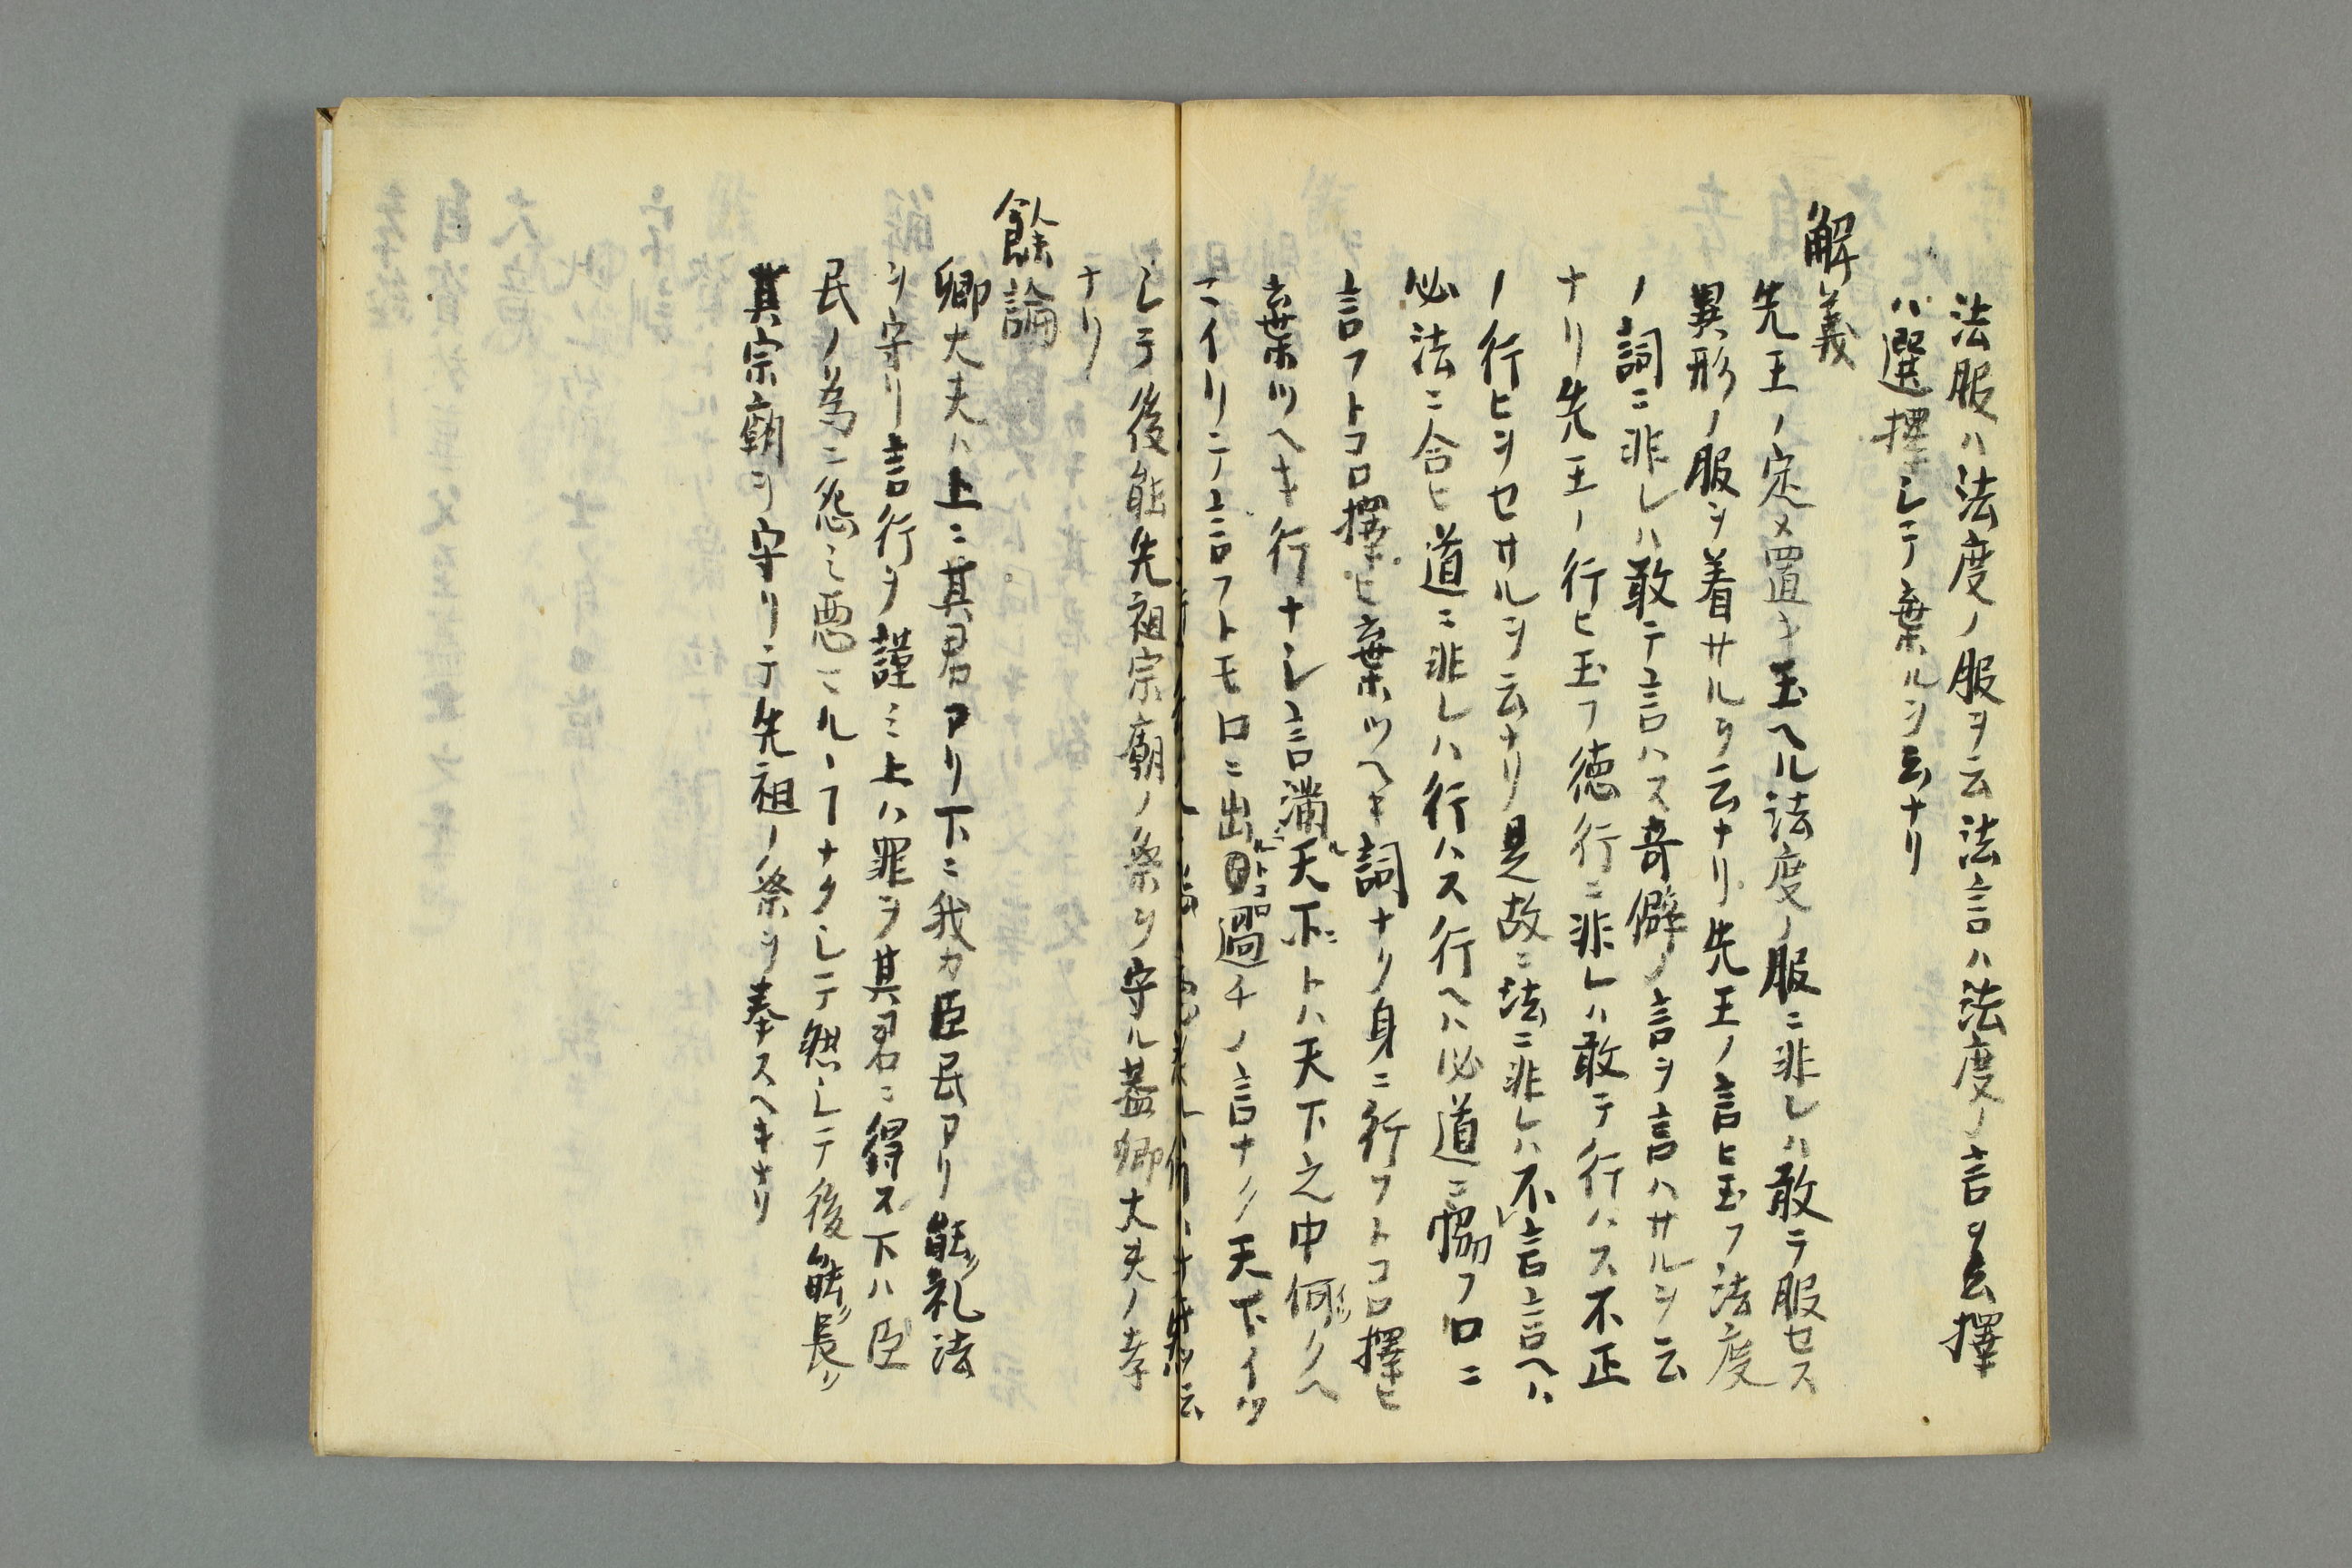 法服ハ法度ノ服ヲ云法言ハ法度ノ言ヲ云擇
ハ選擇シテ棄ルヲ云ナリ
解義
先王ノ定メ置キ玉ヘル法度ノ服ニ非レハ敢テ服セス
異形ノ服ヲ着サルヲ云ナリ先王ノ言ヒ玉フ法度
ノ詞ニ非レハ敢テ言ハス奇僻ノ言ヲ言ハサルヲ云
ナリ先王ノ行ヒ玉フ徳行ニ非レハ敢テ行ハス不正
ノ行ヒヲセサルヲ云ナリ是故ニ法ニ非レハ不レ言言ヘハ
必法ニ合ヒ道ニ非レハ行ハス行ヘハ必道ニ協フ口ニ
言フトコロ擇ヒ棄ツヘキ詞ナク身ニ行フトコロ擇ヒ
棄ツヘキ行ナシ言満ルトハ天下之中何クヘ
マイリテ言フトモ口ニ出ルトコロ過チノ言ナク天下イツ
シテ後能先祖宗廟ノ祭ヲ守ル蓋卿大夫ノ孝
ナリ
餘論
卿大夫ハ上ニ其君アリ下ニ我カ臣民アリ能ク礼法
ヲ守リ言行ヲ謹ミ上ハ罪ヲ其君ニ得ス下ハ臣
民ノ為ニ怨ミ悪マルヽ ナクシテ然シテ後能ク長ク
其宗廟ヲ守リテ先祖ノ祭ヲ奉スヘキナリ